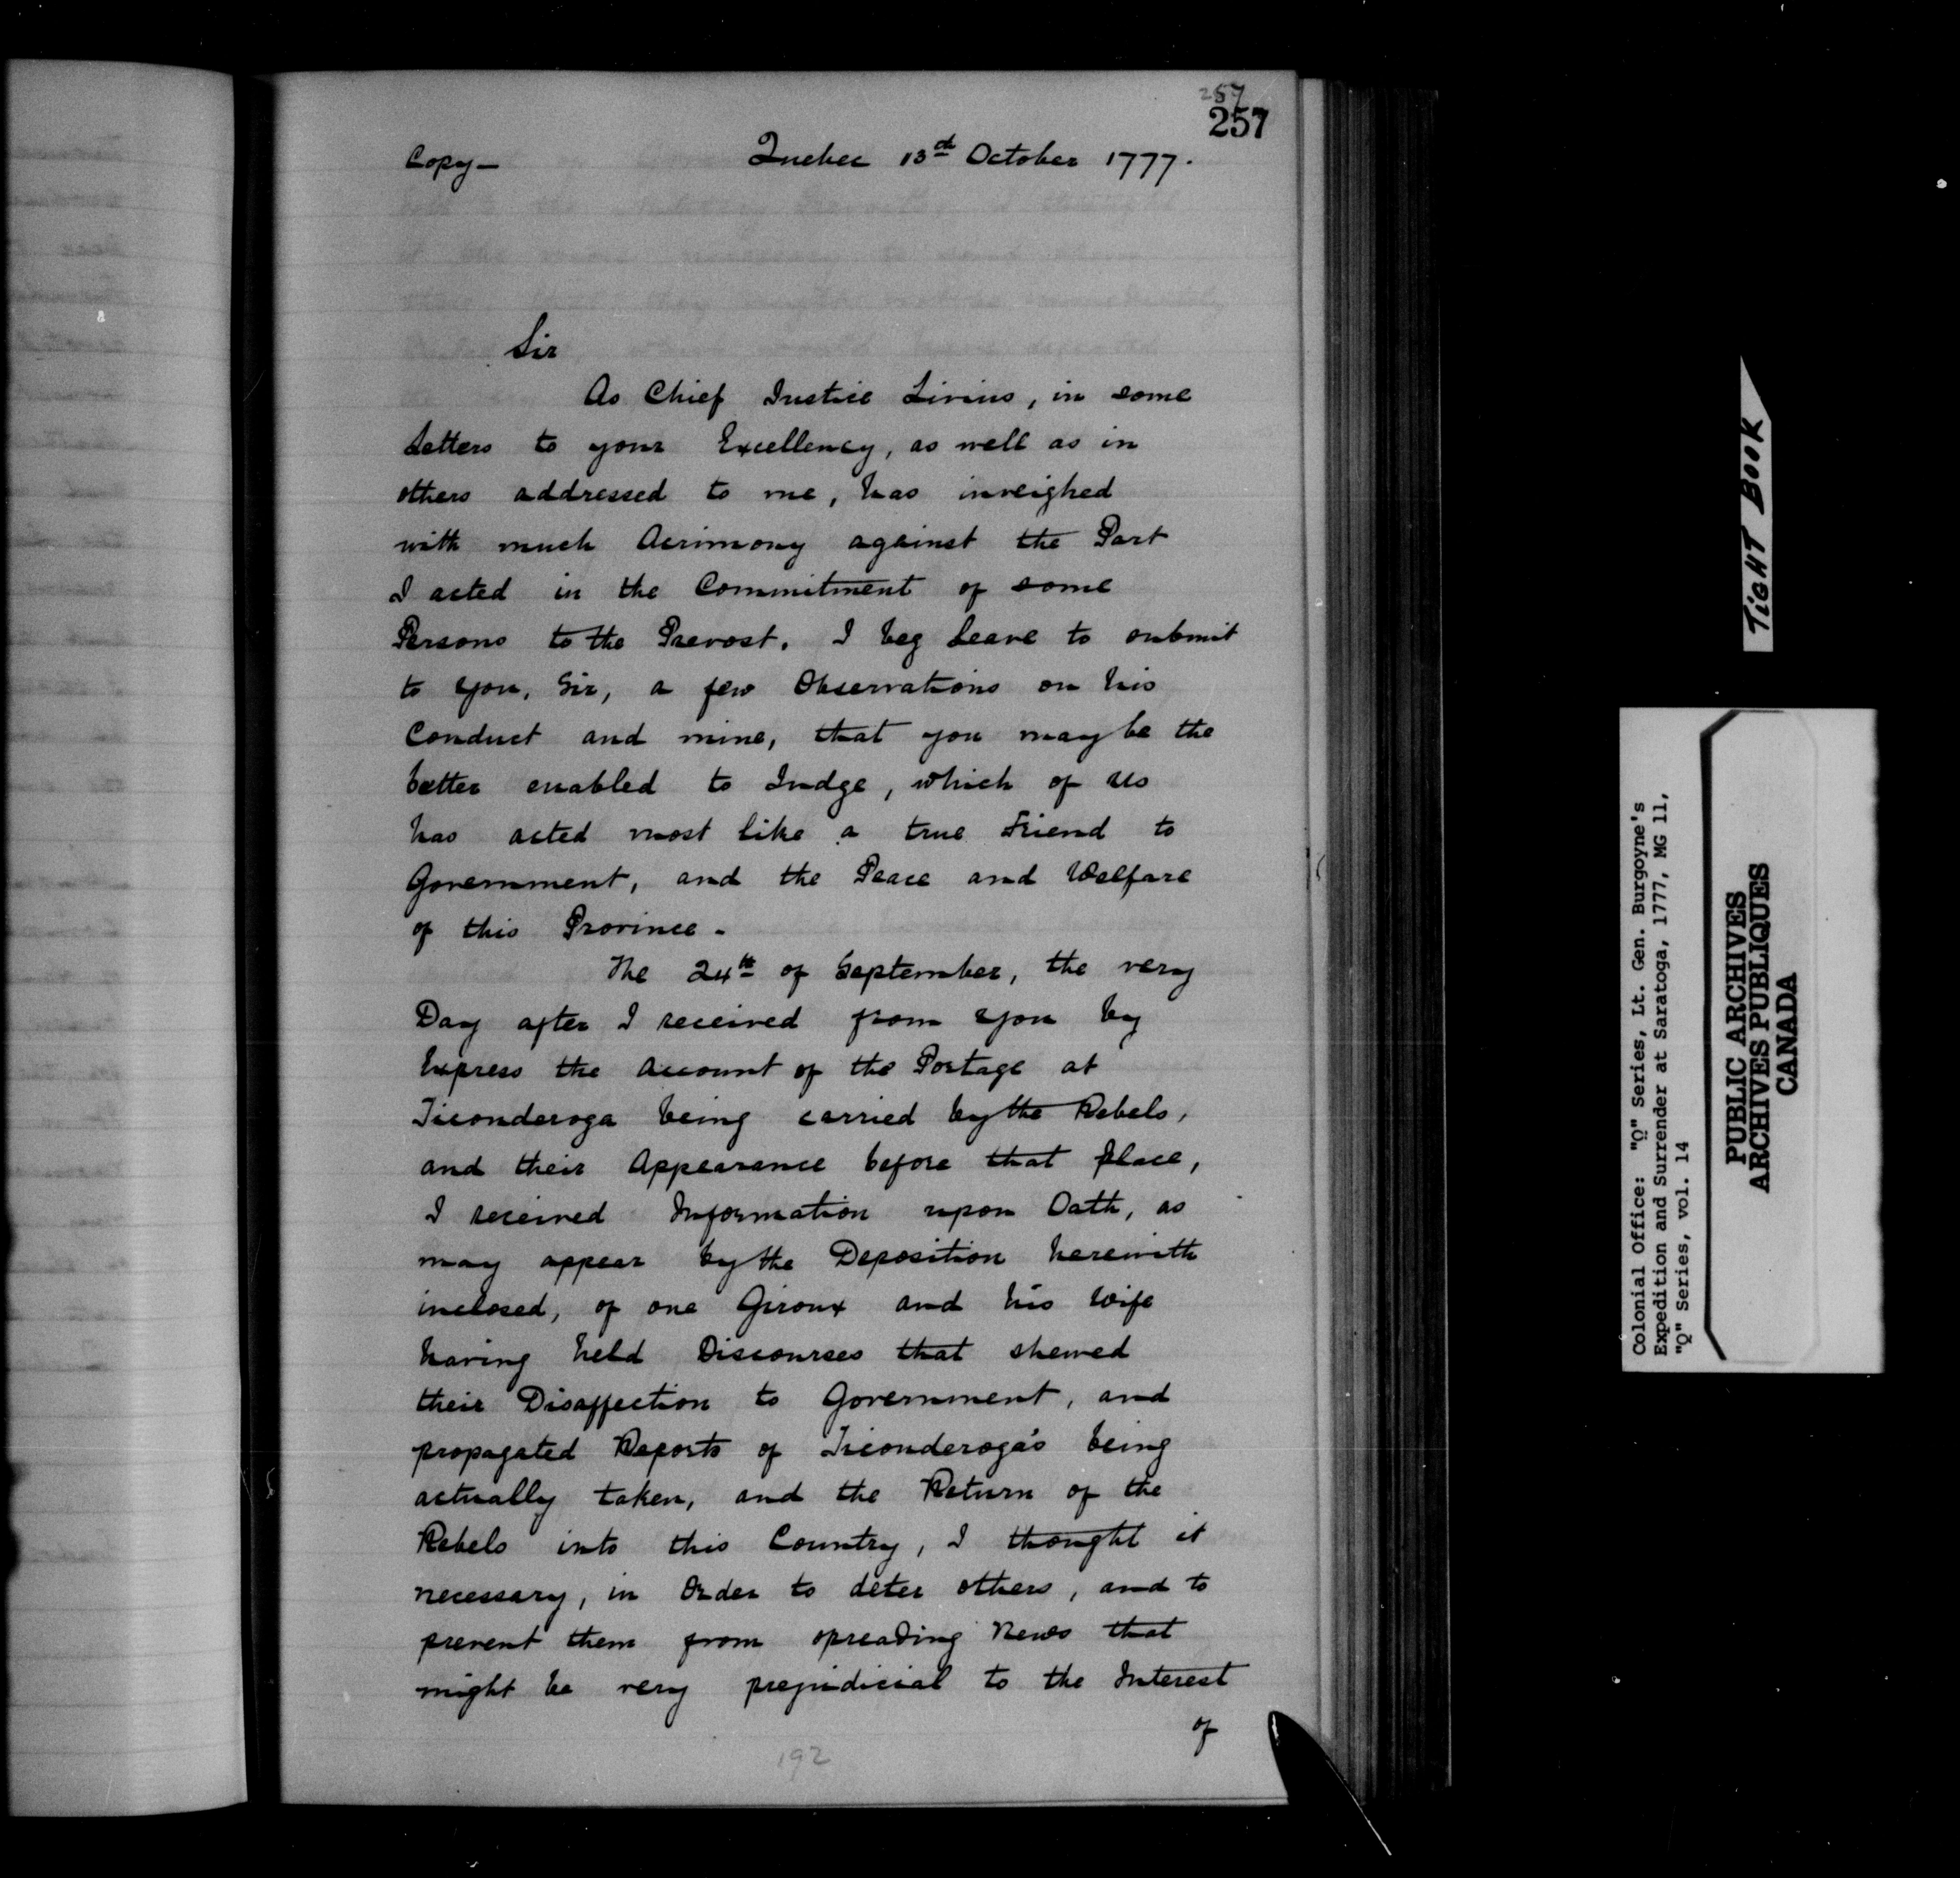 257
257
Copy— Quebec 13th October 1777.
Sir
As Chief Justice Livius, in some
Letters to your Excellency, as well as in
others addressed to me, has inveighed
with much Acrimony against the Part
I acted in the Commitment of some
Persons to the Prevost. I beg Leave to submit
to you, Sir, a few Observations on his
Conduct and mine, that you may be the
better enabled to Judge, which of us
has acted most like a true Friend to
Government, and the Peace and Welfare
of this Province -
The 24th of September, the very
Day after I received from you by
Express the Account of the Portage at
Ticonderoga being carried by the Rebels,
and their Appearance before that place,
I received Information upon Oath, as
may appear by the Deposition herewith
inclosed, of one Giroux and his Wife
having held Discourses that shewed
their Disaffection to Government, and
propagated Reports of Ticonderoga's being
actually taken, and the Return of the
Rebels into this Country, I thought it
necessary, in Order to deter others, and to
prevent them from spreading News that
might be very prejudicial to the Interest
of
192
TIGHT BOOK
Colonial Office: "Q" Series, Lt. Gen. Burgoyne's
Expedition and Surrender at Saratoga, 1777, MG 11,
"Q" Series, vol. 14
PUBLIC ARCHIVES
ARCHIVES PUBLIQUES
CANADA